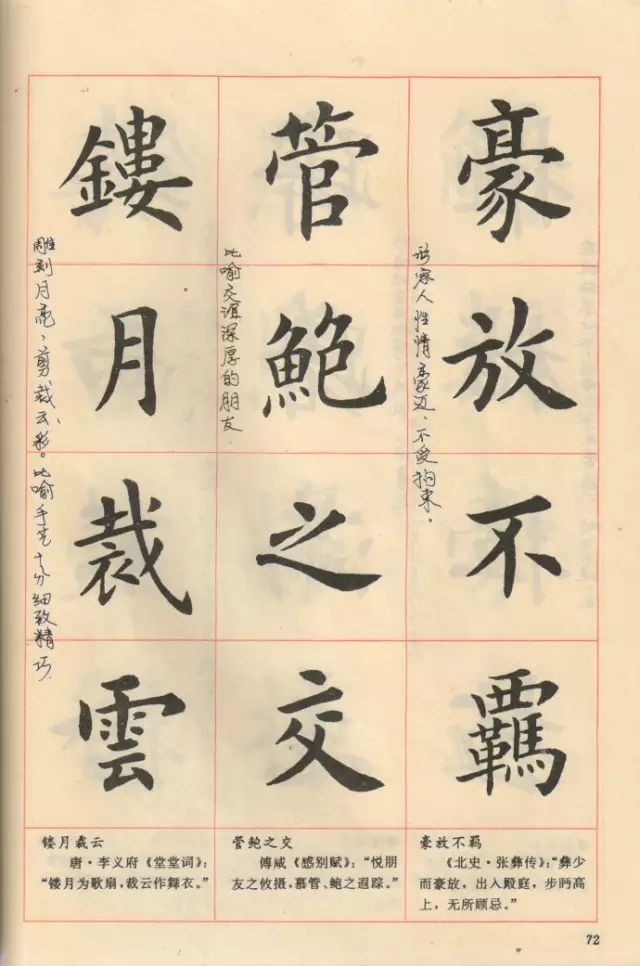 豪放不羈
形容人性情豪迈、不受拘束。
管鮑之交
比喻交谊深厚的朋友.
鏤月裁雲
雕刻月亮，剪裁云彩。比喻手艺十分细致精巧.
豪放不羁
《北史·张彝传》：“彝少
而豪放，出入殿庭，步眄高
上，无所顾忌。”
管鲍之交
傅咸《感别赋》：“悦朋
友之攸摄，慕管、鲍之遐踪。”
镂月裁云
唐·李义府《堂堂词》：
“镂月为歌扇，裁云作舞衣。”
72